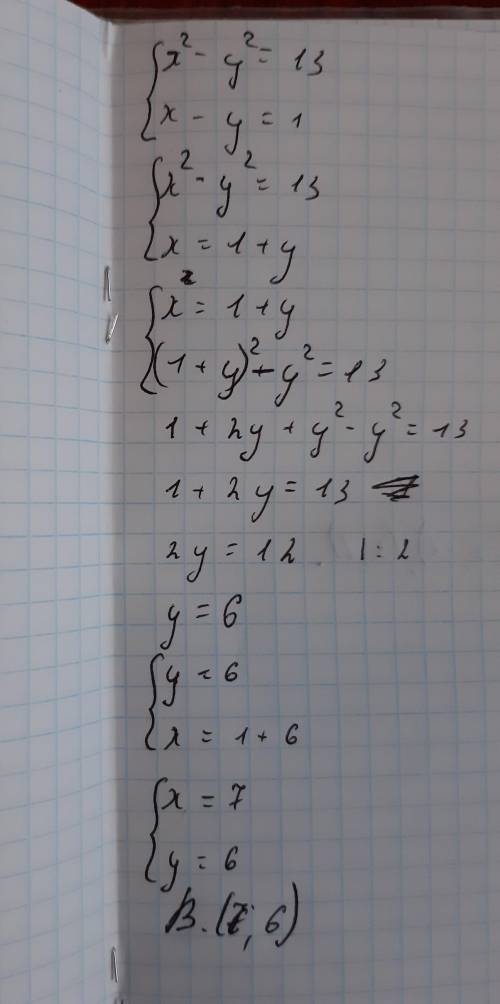 x² - y² = 13
x - y = 1
x² - y² = 13
x = 1 + y
x = 1 + y
(1 + y)² - y² = 13
1 + 2y + y² - y² = 13
1 + 2y = 13
2y = 12 | : 2
y = 6
y = 6
x = 1 + 6
x = 7
y = 6
В. (7; 6)